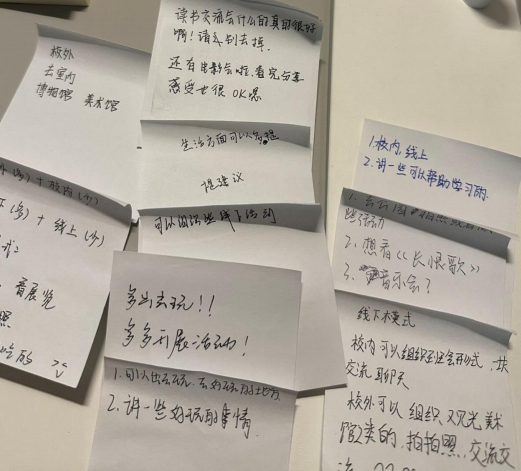 校外
去室内
博物馆 美术馆
读书交流会什么的真的很好
啊！请千万别去掉
还有出影会啦，看完分享
感受也很OK嗯
生活方面可以多提
提建议
可以组织些线下活动
(多)+校内(少)
(多)+线上(少)
看展览
照
吃的
多出去玩！！
多多开展活动！
1.可以出去玩，去好玩的地方
2.讲一些好玩的事情
1.校内，线上
2.讲一些可以帮助学习的
1.去公园拍照或者
活动
2.想看《长恨歌》
3.音乐会？
线下本模式
校内可以组织茶话会形式，一块
交流聊天
校外可以组织观光美术
馆之类的，拍拍照，交流交
流